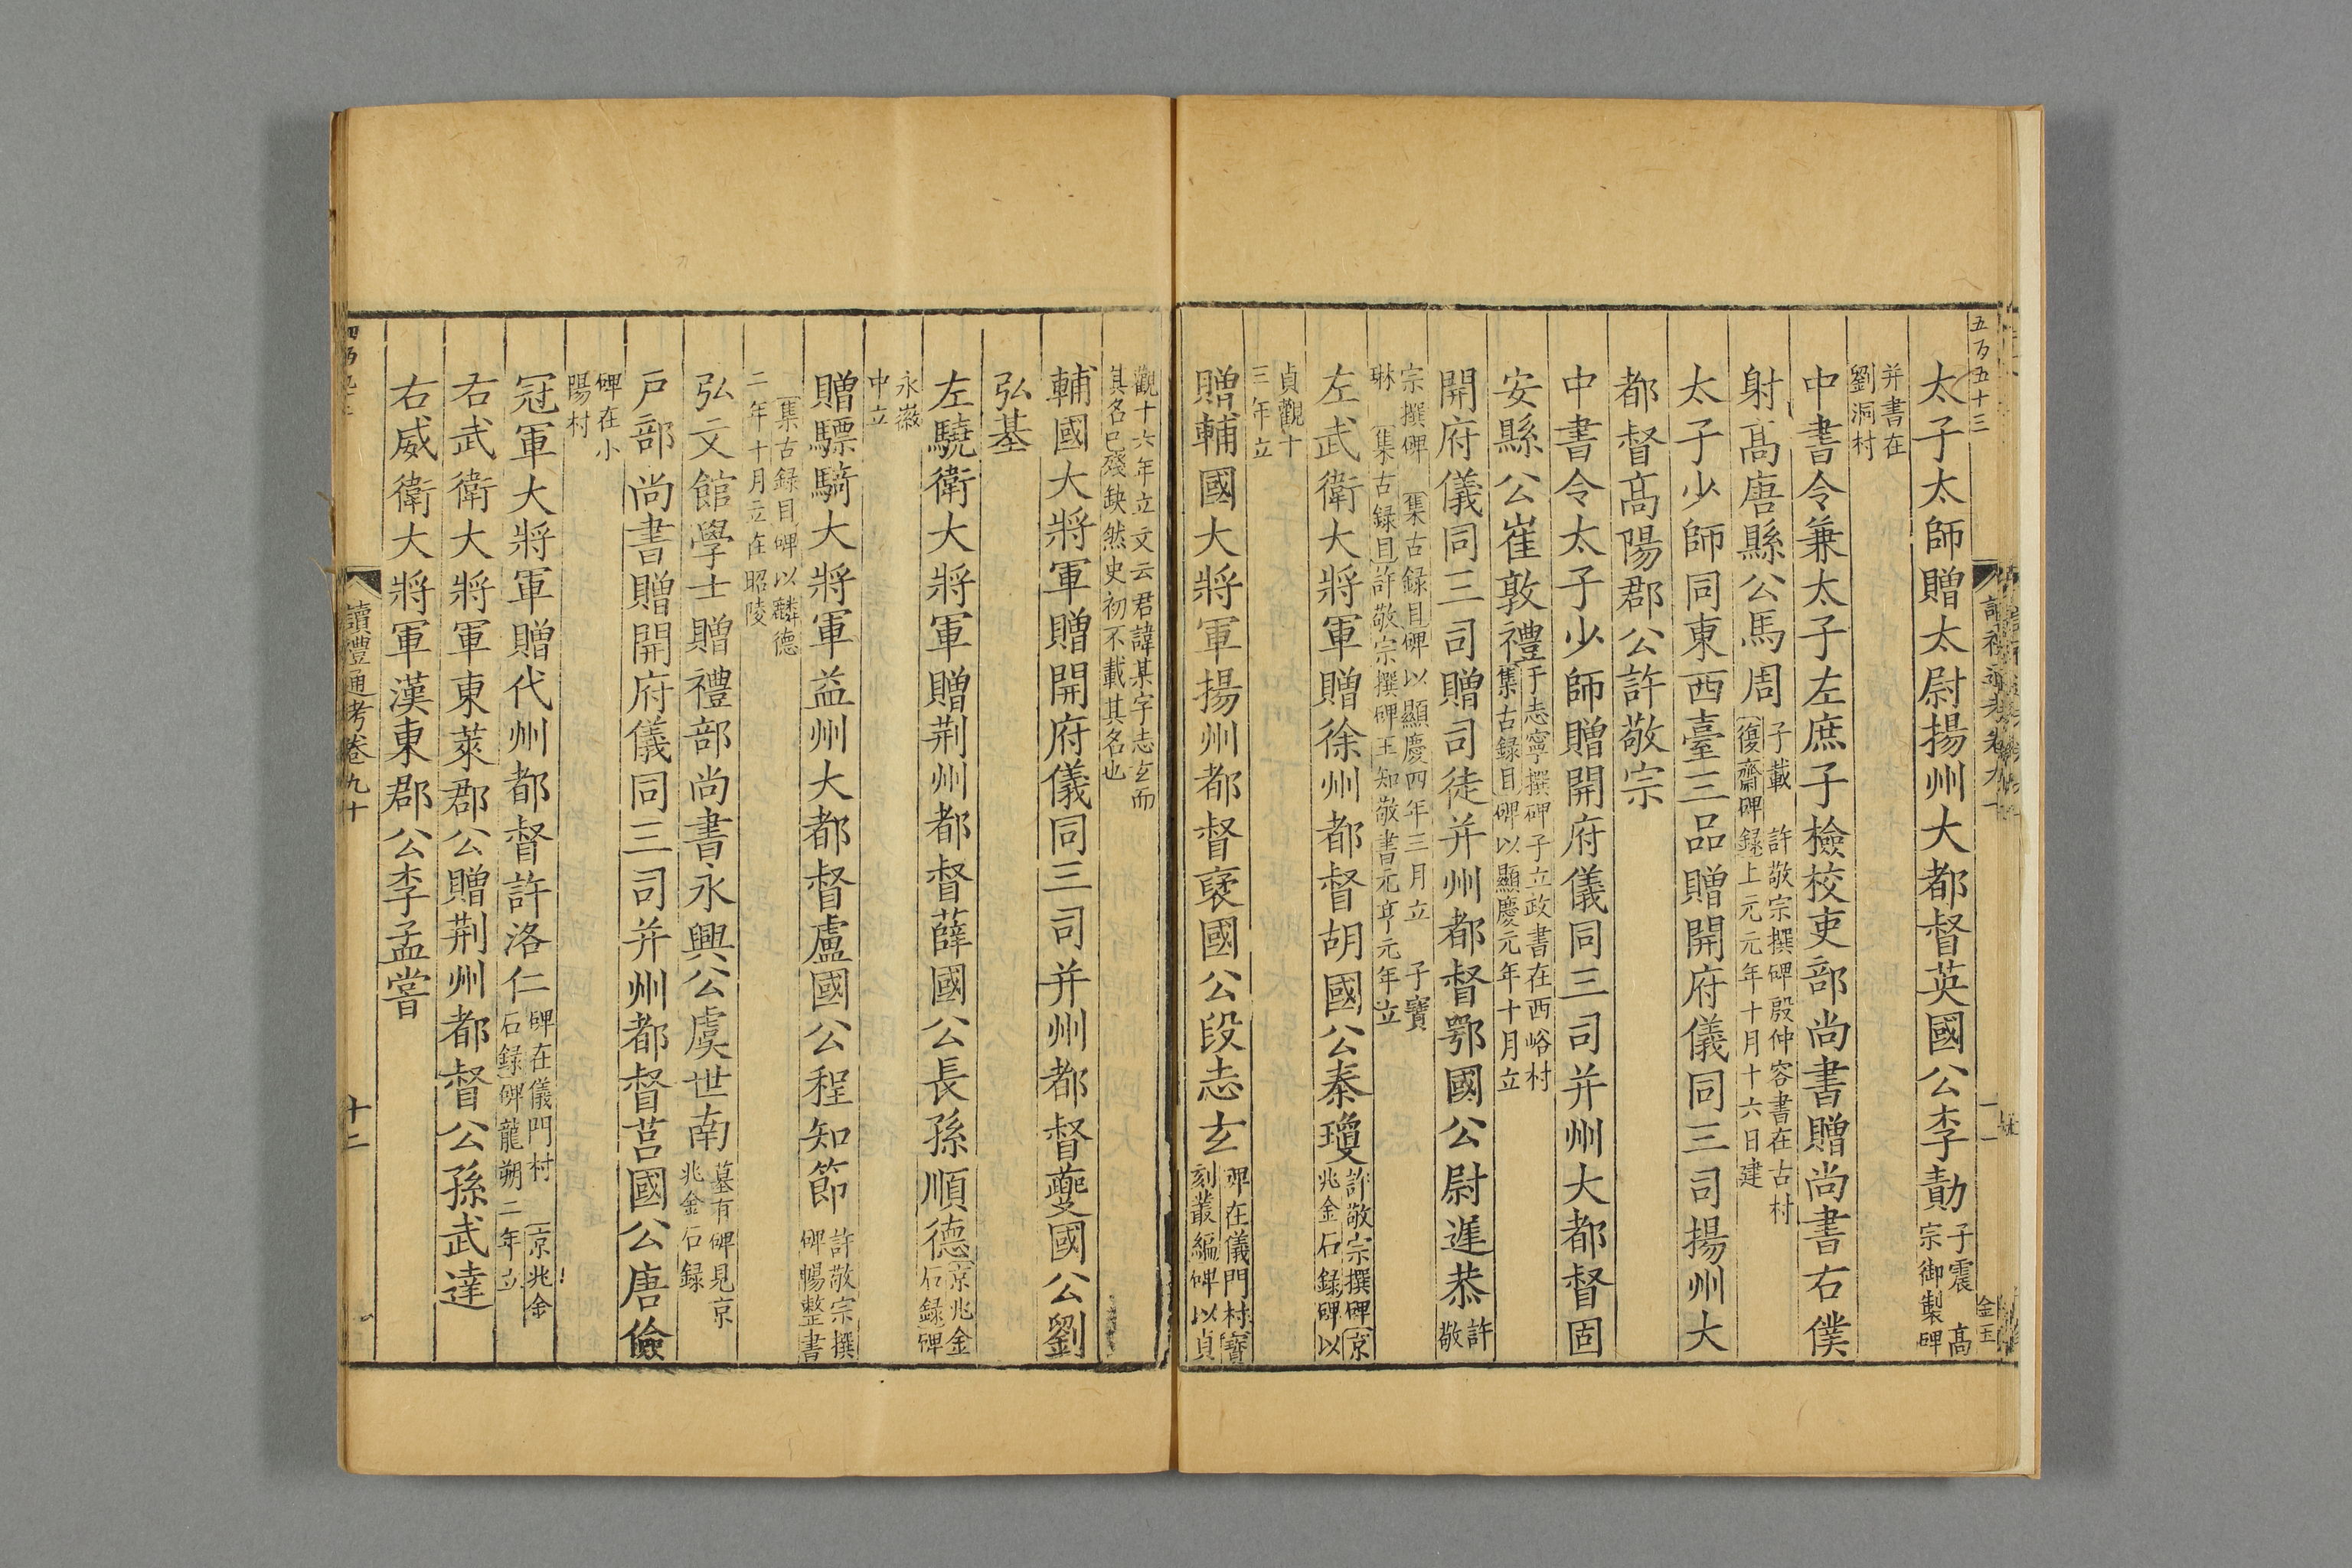 五百五十三
太子太師贈太尉揚州大都督英國公李勣子震 高宗御製碑
并書在劉洞村
中書令兼太子左庶子檢校吏部尚書贈尚書右僕
射髙唐縣公馬周子載 許敬宗撰碑殷仲容書在古村復齋碑録上元元年十月十六日建
太子少師同東西臺三品贈開府儀同三司揚州大
都督髙陽郡公許敬宗
中書令太子少師贈開府儀同三司并州大都督固
安縣公崔敦禮于志寧撰碑子立政書在西峪村集古録目碑以顯慶元年十月立
開府儀同三司贈司徒并州都督鄂國公尉遲恭許敬
宗撰碑 集古録目碑以顯慶四年三月立 子寶
琳 集古録目許敬宗撰碑王知敬書元亨元年立
左武衛大將軍贈徐州都督胡國公秦瓊許敬宗撰碑京兆金石録碑以
貞觀十三年立
贈輔國大將軍揚州都督褒國公段志玄碑在儀門村寶刻叢編碑以貞
觀十六年立文云君諱某字志玄而
其名已殘缺然史初不載其名也
輔國大將軍贈開府儀同三司并州都督夔國公劉
弘基
左驍衛大將軍贈荆州都督薛國公長孫順德京兆金石録碑
永徽中立
贈驃騎大將軍益州大都督盧國公程知節許敬宗撰碑暢整書
集古録目碑以麟德
二年十月立在昭陵
弘文館學士贈禮部尚書永興公虞世南墓有碑見京兆金石録
戸部尚書贈開府儀同三司并州都督莒國公唐儉
碑在小陽村
冠軍大將軍贈代州都督許洛仁碑在儀門村 京兆金石録碑龍朔二年立
右武衛大將軍東萊郡公贈荆州都督公孫武達
右威衛大將軍漢東郡公李孟嘗
讀禮通考卷九十
十二